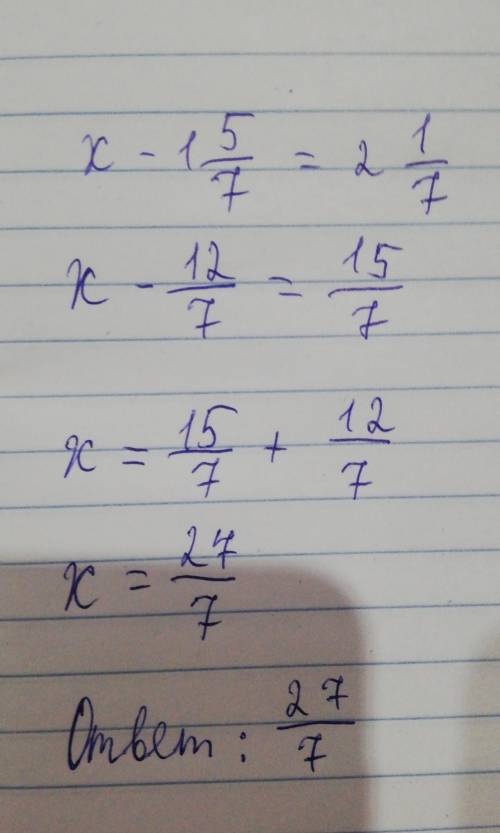 x - 1 5/7 = 2 1/7
x - 12/7 = 15/7
x = 15/7 + 12/7
x = 27/7
Ответ: 27/7